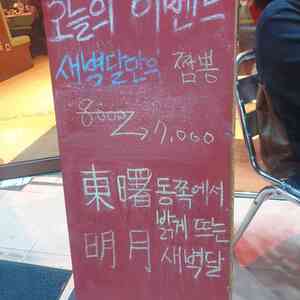 오늘의 이벤트
새벽달만의 짬뽕
8000 → 7,000
東曙 동쪽에서
밝게 뜨는
明月 새벽달